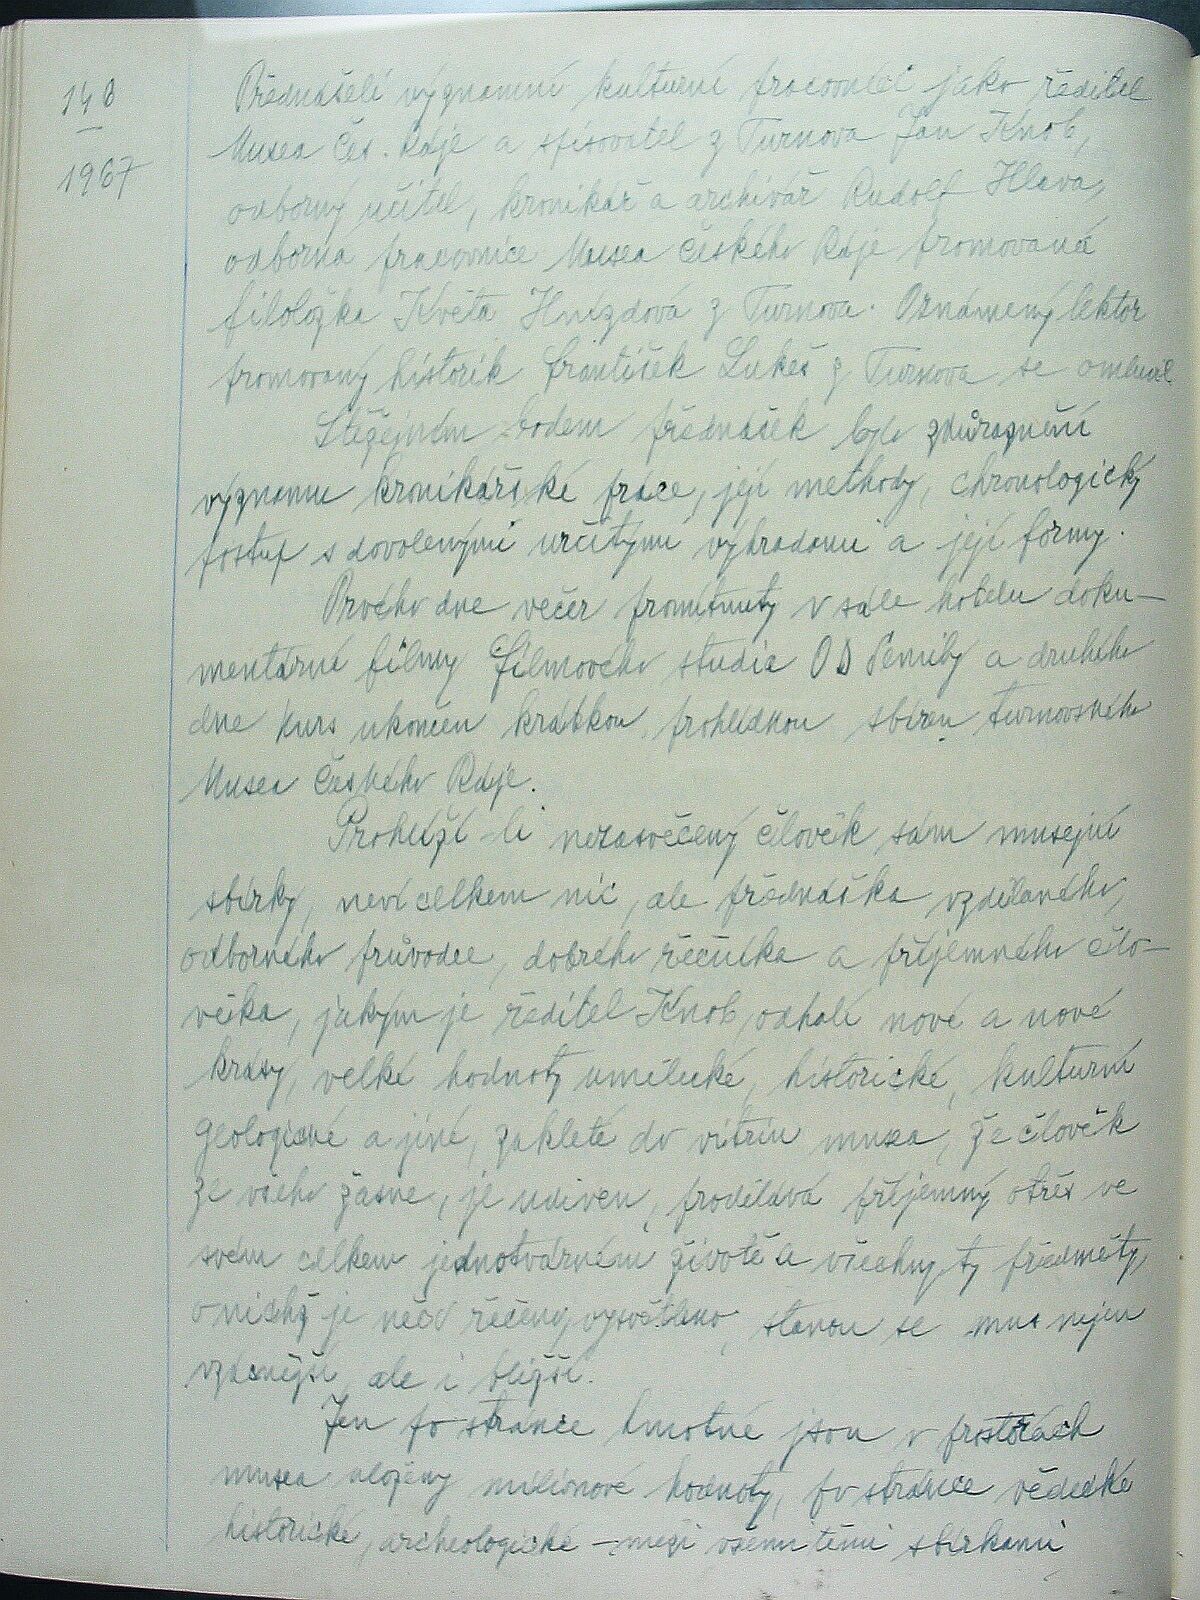 140
—
1967
Přednášeli význomní kulturní pracovníci jako ředitel
Musea Čes. Ráje a spisovatel z Turnova Jan Knob,
odborný učitel, kronikář a archivář Rudolf Hlava,
odborná pracovnice Musea Českého Ráje promovaná
filoložka Květa Hnízdová z Turnova. Oznámený lektor
promovaný historik František Lukeš z Turnova se omluvil
Stěžejním bodem přednášek bylo zdůraznění
významu kronikářské práce, její methody, chronologický
postup s dovolenými určitými výhradami a její formy.
Prvého dne večer promítnuty v sále hotelu doku-
mentární filmy filmového studia OD Semily a druhého
dne kurs ukončen krátkou prohlídkou sbírek turnovského
Musea Českého Ráje.
Prohlíží-li nezasvěcený člověk sám musejní
sbírky, neví celkem nic, ale přednáška vzdělaného,
odborného průvodce, dobrého řečníka a příjemného člo-
věka, jakým je ředitel Knob, odhalí nové a nové
krásy, velké hodnoty umělecké, historické, kulturní
geologické a jiné, zakleté do vitrin musea, že člověk
ze všeho žasne, je udiven, prodělává příjemný otřes ve
svém celkem jednotvárném životě a všechny ty předměty,
o nichž je něco řečeno, vysvětleno, stanou se mu nejen
vzácnější, ale i bližší.
Jen po stránce hmotné jsou v prostorách
musea uloženy milionové hodnoty, po stránce vědecké
historické, archeologické – mezi všemi těmi sbírkami